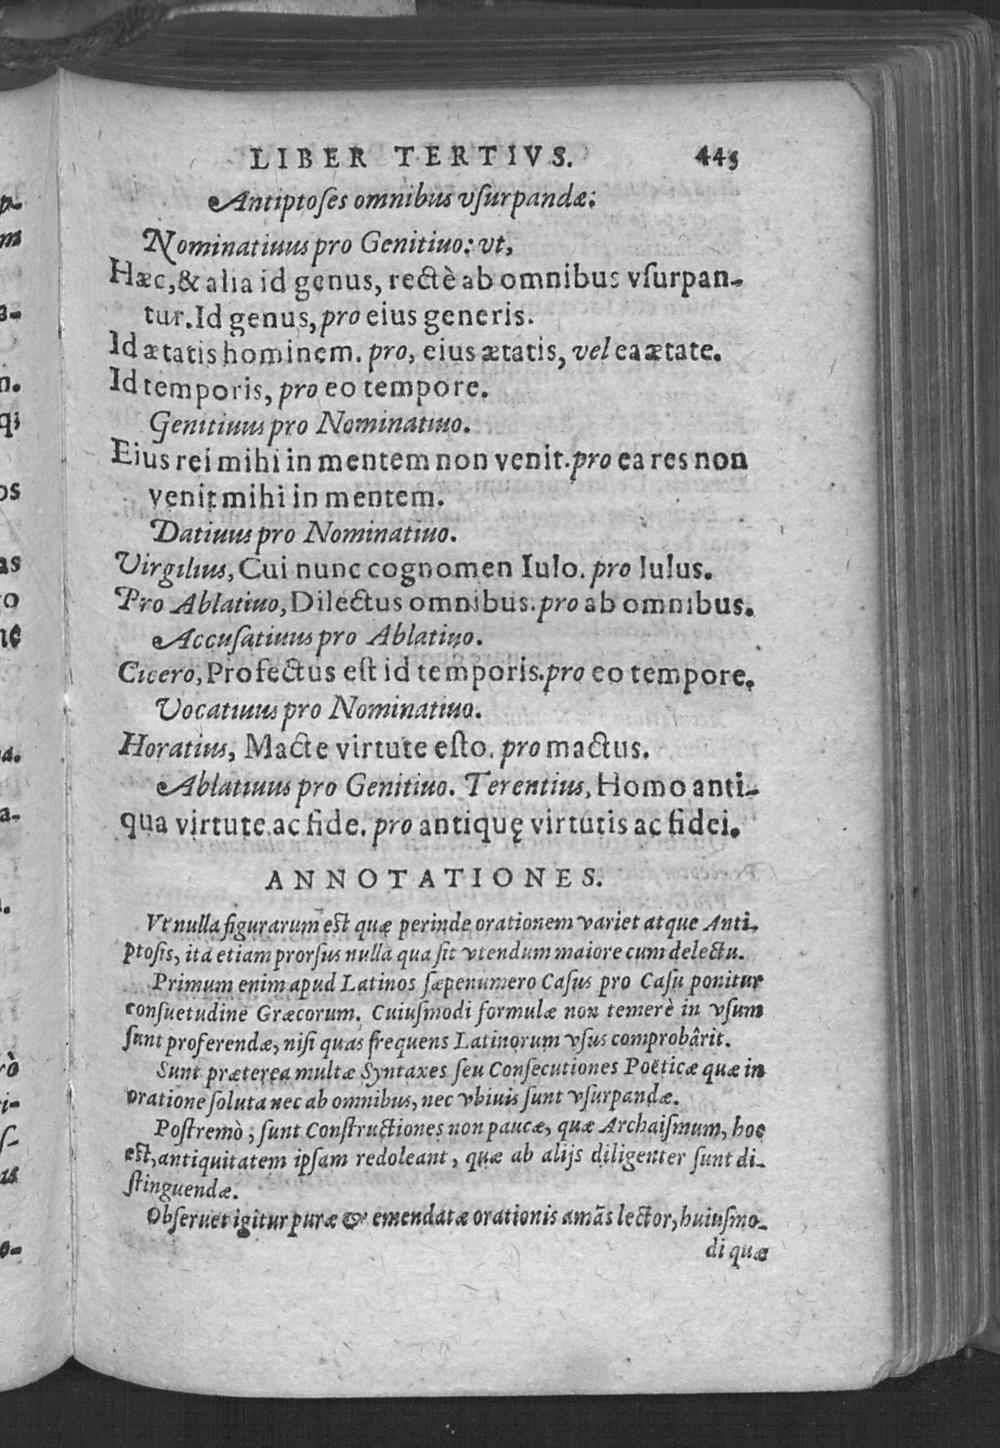 LIBER TERTIVS. 445
Antiptoſes omnibus vſurpandæ:
Nominatiuus pro Genitiuo: vt,
Hæc, & alia id genus, rectè ab omnibus vſurpan-
tur. Id genus, pro eius generis.
Id ætatis hominem. pro, eius ætatis, vel ea ætate.
Id temporis, pro eo tempore.
Genitiuus pro Nominatiuo.
Eius rei mihi in mentem non venit. pro ea res non
venit mihi in mentem.
Datiuus pro Nominatiuo.
Virgilius, Cui nunc cognomen Iulo. pro Iulus.
Pro Ablatiuo, Dilectus omnibus. pro ab omnibus.
Accuſatiuus pro Ablatiuo.
Cicero, Profectus eſt id temporis. pro eo tempore.
Vocatiuus pro Nominatiuo.
Horatius, Macte virtute eſto. pro mactus.
Ablatiuus pro Genitiuo. Terentius, Homo anti-
qua virtute ac fide. pro antiquę virtutis ac fidei.
ANNOTATIONES.
Vt nulla figurarum eſt quæ perinde orationem variet atque Anti-
ptoſis, ita etiam prorſus nulla qua ſit vtendum maiore cum delectu.
Primum enim apud Latinos ſæpenumero Caſus pro Caſu ponitur
conſuetudine Græcorum. Cuiuſmodi formulæ non temerè in vſum
ſunt proferendæ, niſi quas frequens Latinorum vſus comprobârit.
Sunt præterea multæ Syntaxes ſeu Conſecutiones Poëticæ quæ in
oratione ſoluta nec ab omnibus, nec vbiuis ſunt vſurpandæ.
Poſtremò; ſunt Conſtructiones non paucæ, quæ Archaiſmum, hoc
eſt, antiquitatem ipſam redoleant, quæ ab alijs diligenter ſunt di-
ſtinguendæ.
Obſeruet igitur puræ & emendatæ orationis amãs lector, huiuſmo-
di quæ